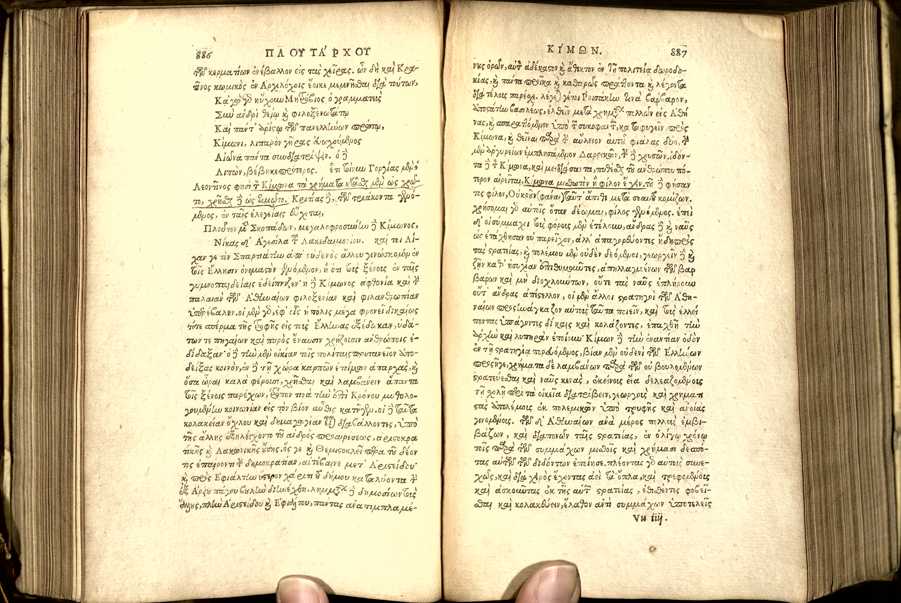 886 ΠΛΟΥΤΑΡΧΟΥ
τῶν κερματίων ἐνέβαλλον εἰς τὰς χεῖρας. ὧν δὴ καὶ Κρα-
τῖνος κωμικὸς ἐν Ἀρχιλόχοις ἔοικε μεμνῆσθαι διὰ τούτων,
Κἀγὼ γὸ ηὔχουν Μητρόβιος ὁ γραμματεὺς
Σὺν ἀνδρὶ θείῳ καὶ φιλοξενωτάτῳ
Καὶ πάντ' ἀρίστῳ τῶν πανελλήνων πρώτῳ,
Κίμωνι, λιπαρὸν γῆρας εὐωχούμενος
Αἰῶνα πάντα συνδιατρίψειν. ὁ δὲ
Λιπὼν, βέβηκε πρότερος. ἔτι τοίνυν Γοργίας μὲν ὁ
Λεοντῖνος φησὶ τὸν Κίμωνα τὰ χρήματα κτᾶσθαι μὲν ὡς χρῷ-
το, χρῆσθαι δὲ ὡς τιμῷτο. Κριτίας δὲ, τῶν τριάκοντα γενό-
μενος, ἐν ταῖς ἐλεγείαις εὔχεται,
Πλοῦτον μὲν Σκοπαδῶν, μεγαλοφροσύνην δὲ Κίμωνος,
Νίκας δ' Ἀγεσίλα τοῦ Λακεδαιμονίου. καί τοι Λί-
χαν γε τὸν Σπαρτιάτην ἀπ' οὐδενὸς ἄλλου γινώσκομεν ἐν
τοῖς Ἕλλησιν ὀνομαστὸν γενόμενον, ἢ ὅτι τοὺς ξένους ἐν ταῖς
γυμνοπαιδείαις ἐδείπνιζεν. ἡ δὲ Κίμωνος ἀφθονία καὶ τὴν
παλαιὰν τῶν Ἀθηναίων φιλοξενίαν καὶ φιλανθρωπίαν
ὑπερέβαλεν. οἱ μὲν γὰρ, ἐφ' οἷς ἡ πόλις μέγα φρονεῖ δικαίως,
τό τε σπέρμα τῆς τροφῆς εἰς τοὺς Ἕλληνας ἐξέδωκαν, ὑδά-
των τε πηγαίων καὶ πυρὸς ἔναυσιν χρῄζουσιν ἀνθρώποις ἐ-
δίδαξαν· ὁ δὲ τὴν μὲν οἰκίαν τοῖς πολίταις πρυτανεῖον ἀπο-
δείξας κοινὸν, ἐν δὲ τῇ χώρᾳ καρπῶν ἑτοίμων ἀπαρχὰς, καὶ
ὅσα ὧραι καλὰ φέρουσι, χρῆσθαι καὶ λαμβάνειν ἅπαντα
τοῖς ξένοις παρέχων, τρόπον τινὰ τὴν ἐπὶ Κρόνου μυθολο-
γουμένην κοινωνίαν εἰς τὸν βίον αὖθις κατῆγεν. οἱ δὲ ταῦτα
κολακείαν ὄχλου καὶ δημαγωγίαν εἶναι διαβάλλοντες, ὑπὸ
τῆς ἄλλης ἐξηλέγχοντο τοῦ ἀνδρὸς προαιρέσεως, ἀριστοκρα-
τικῆς καὶ Λακωνικῆς οὔσης, ὅς γε καὶ Θεμιστοκλεῖ πέρα τοῦ δέον-
τος ἐπαίροντι τὴν δημοκρατίαν, ἀντέβαινε μετ' Ἀριστείδου·
καὶ πρὸς Ἐφιάλτην ὕστερον χάριτι τοῦ δήμου καταλύοντα τὴν
ἐξ Ἀρείου πάγου βουλὴν διηνέχθη. λημμάτων δὲ δημοσίων τοὺς
ἄλλους, πλὴν Ἀριστείδου καὶ Ἐφιάλτου, πάντας ἀναπιμπλαμέ-
ΚΙΜΩΝ. 887
νους ὁρῶν, αὑτὸν ἀδέκαστον καὶ ἄθικτον ἐν τῇ πολιτείᾳ δωροδο-
κίας, καὶ πάντα προῖκα καὶ καθαρῶς πράττοντα καὶ λέγοντα
διὰ τέλους παρέσχε. λέγεταί γέ τοι Ῥοισάκην τινὰ βάρβαρον,
ἀποστάτην βασιλέως, ἐλθεῖν μετὰ χρημάτων πολλῶν εἰς Ἀθή-
νας, καὶ σπαραττόμενον ὑπὸ τῶν συκοφαντῶν, καταφυγεῖν πρὸς
Κίμωνα, καὶ θεῖναι παρὰ τὴν αὔλειον αὐτοῦ φιάλας δύο, τὴν
μὲν ἀργυρείων ἐμπλησάμενον Δαρεικῶν, τὴν δὲ χρυσῶν, ἰδόν-
τα δὲ τὸν Κίμωνα, καὶ μειδιάσαντα, πυθέσθαι τοῦ ἀνθρώπου πό-
τερον αἱρεῖται, Κίμωνα μισθωτὸν ἢ φίλον ἔχειν, τοῦ δὲ φήσαν-
τος φίλον, Οὐκοῦν (φάναι) ταῦτ' ἄπιθι μετὰ σεαυτοῦ κομίζων.
χρήσομαι γὰρ αὐτοῖς ὅταν δέωμαι, φίλος γενόμενος. ἐπεὶ
δ' οἱ σύμμαχοι τοὺς φόρους μὲν ἐτέλουν, ἄνδρας δὲ καὶ ναῦς
ὡς ἐτάχθησαν οὐ παρεῖχον, ἀλλ' ἀπαγορεύοντες ἤδη πρὸς
τὰς στρατείας, καὶ πολέμου μὲν οὐδὲν δεόμενοι, γεωργεῖν δὲ καὶ
ζῆν καθ' ἡσυχίαν ἐπιθυμοῦντες, ἀπηλλαγμένων τῶν βαρ-
βάρων καὶ μὴ διοχλούντων, οὔτε τὰς ναῦς ἐπλήρουν
οὔτ' ἄνδρας ἀπέστελλον, οἱ μὲν ἄλλοι στρατηγοὶ τῶν Ἀθη-
ναίων προσηνάγκαζον αὐτοὺς ταῦτα ποιεῖν, καὶ τοὺς ἐλλεί-
ποντας ὑπάγοντες δίκαις καὶ κολάζοντες, ἐπαχθῆ τὴν
ἀρχὴν καὶ λυπηρὰν ἐποίουν· Κίμων δὲ τὴν ἐναντίαν ὁδὸν
ἐν τῇ στρατηγίᾳ πορευόμενος, βίαν μὲν οὐδενὶ τῶν Ἑλλήνων
προσῆγε, χρήματα δὲ λαμβάνων παρὰ τῶν οὐ βουλομένων
στρατεύεσθαι καὶ ναῦς κενὰς, ἐκείνους εἴα δελεαζομένους
τῇ σχολῇ περὶ τὰ οἰκεῖα διατρίβειν, γεωργοὺς καὶ χρηματι-
στὰς ἀπολέμους ἐκ πολεμικῶν ὑπὸ τρυφῆς καὶ ἀνοίας
γενομένους. τῶν δ' Ἀθηναίων ἀνὰ μέρος πολλοὺς ἐμβι-
βάζων, καὶ διαπονῶν ταῖς στρατείαις, ἐν ὀλίγῳ χρόνῳ
τοῖς παρὰ τῶν συμμάχων μισθοῖς καὶ χρήμασι δεσπό-
τας αὐτῶν τῶν διδόντων ἐποίησε. πλέοντας γὰρ αὐτοὺς συνε-
χῶς, καὶ διὰ χειρὸς ἔχοντας ἀεὶ τὰ ὅπλα, καὶ τρεφομένους
καὶ ἀσκοῦντας ἐκ τῆς αὐτῶν στρατείας, ἐθισθέντες φοβεῖ-
σθαι καὶ κολακεύειν, ἔλαθον ἀντὶ συμμάχων ὑποτελεῖς